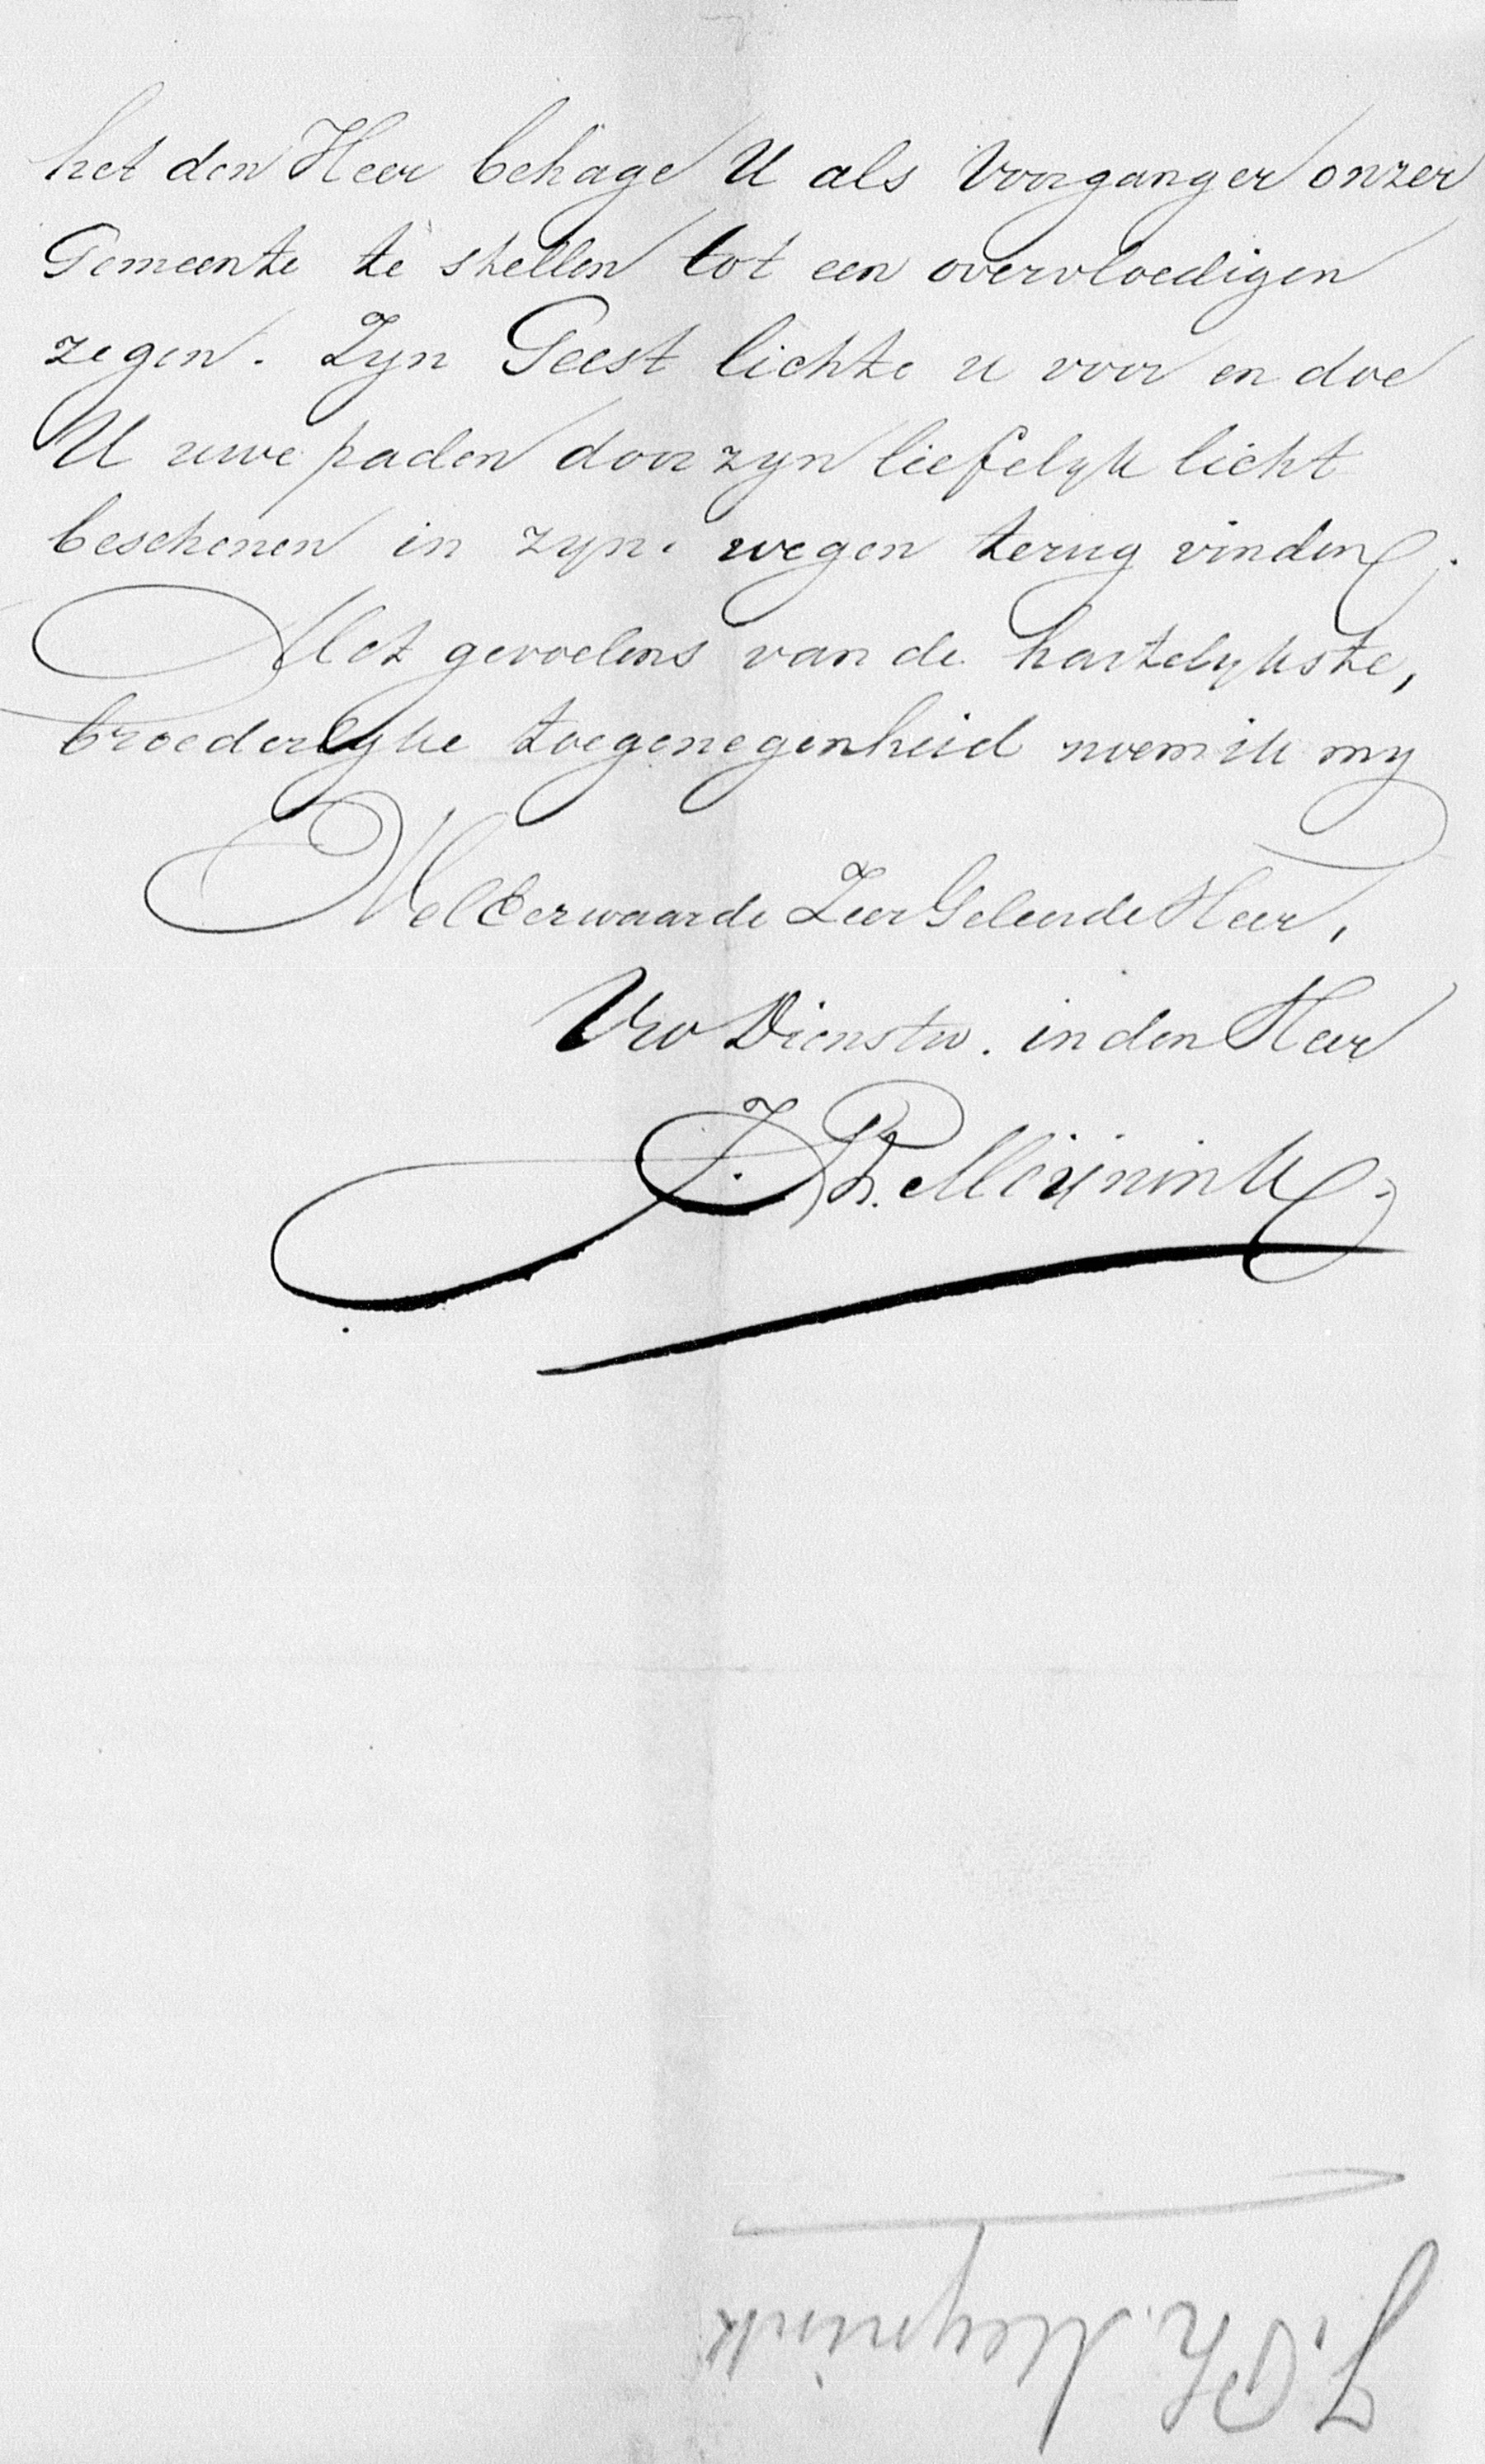 het den Heer behage U als Voorganger onzer
Gemeente te stellen tot een overvloedigen
zegen. Zyn Geest lichte u voor en doe
U uwe paden door zyn liefelyk licht
beschenen in zyne wegen terug vinden.
Met gevoelens van de hartelykste,
broederlyke toegenegenheid noem ik my
WelEerwaarde Zeer Geleerde Heer,
Uw Dienstw. in den Heer
J. Th. Meijnink
J. Th. Meynink